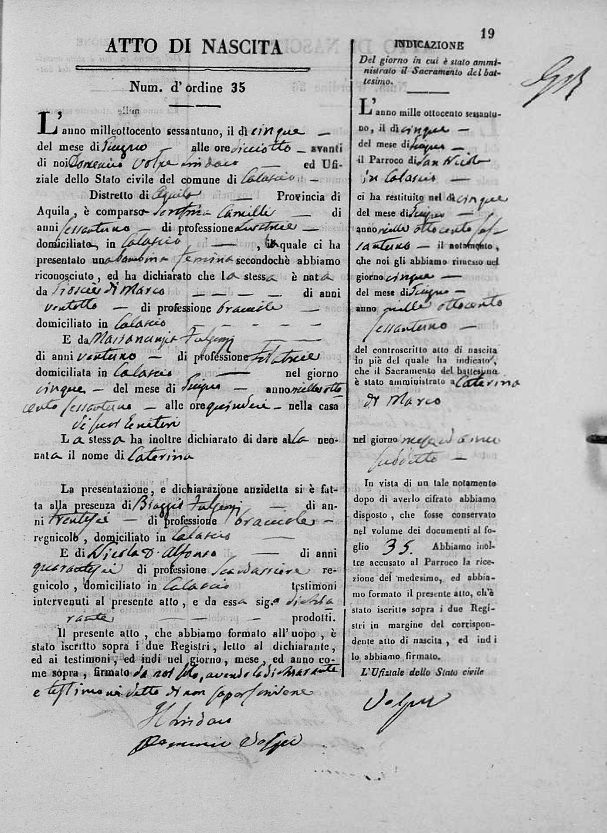 19
ATTO DI NASCITA
Num. d'ordine 35
L'anno milleottocento sessantuno, il dì cinque
del mese di Giugno alle ore diciotto avanti
di noi Domenico Volpe Sindaco ed Ufi-
ziale dello Stato civile del comune di Calascio
Distretto di Aquila Provincia di
Aquila, è comparsa Camilli di
anni sessantuno di professione
domiciliata in Calascio, la quale ci ha
presentato una bambina femina secondochè abbiamo
riconosciuto, ed ha dichiarato che la stessa è nata
da di Marco di anni
ventotto di professione bracciale
domiciliato in Calascio
E da Fulgenzi
di anni ventuno di professione filatrice
domiciliata in Calascio nel giorno
cinque del mese di Giugno anno mille otto
cento sessantuno alle ore quindici nella casa
di genitori
La stessa ha inoltre dichiarato di dare alla neo-
nata il nome di Caterina
La presentazione, e dichiarazione anzidetta si è fat-
ta alla presenza di Biaggio Fulgenzi di an-
ni trentasei di professione bracciale
regnicolo, domiciliato in Calascio
E di Nicola D'Alfonso di anni
quarantasei di professione scardassiere re-
gnicolo, domiciliato in Calascio testimoni
intervenuti al presente atto, e da essa sig.a dichia
rante prodotti.
Il presente atto, che abbiamo formato all'uopo, è
stato iscritto sopra i due Registri, letto al dichiarante,
ed ai testimoni, ed indi nel giorno, mese, ed anno co-
me sopra, firmato da noi solo, avendo la dichiarante
e testimoni detto di non saper scrivere
Il Sindaco
Domenico Volpe
INDICAZIONE
Del giorno in cui è stato ammi-
nistrato il Sacramento del bat-
tesimo.
L'anno mille ottocento sessantu-
no, il dì cinque
del mese di Giugno
il Parroco di San Nicola
in Calascio
ci ha restituito nel dì cinque
del mese di Giugno
anno mille ottocento ses
santuno il notamento,
che noi gli abbiamo rimesso nel
giorno cinque
del mese di Giugno
anno mille ottocento
sessantuno
del controscritto atto di nascita
in piè del quale ha indicato,
che il Sacramento del battesimo
è stato amministrato a Caterina
di Marco
nel giorno mese ed anno
suddetto
In vista di un tale notamento
dopo di averlo cifrato abbiamo
disposto, che fosse conservato
nel volume dei documenti al fo-
glio 35. Abbiamo inol-
tre accusato al Parroco la rice-
zione del medesimo, ed abbia-
mo formato il presente atto, ch'è
stato iscritto sopra i due Regi-
stri in margine del corrispon-
dente atto di nascita, ed indi
lo abbiamo firmato.
L'Ufiziale dello Stato civile
Volpe